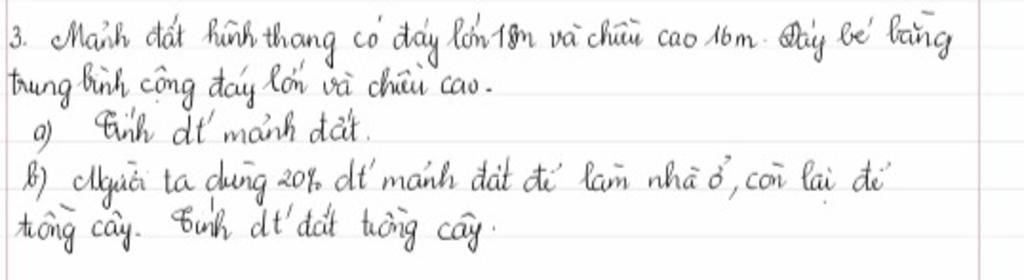 3. Mảnh đất hình thang có đáy lớn 18m và chiều cao 16m. Đáy bé bằng
trung bình cộng đáy lớn và chiều cao.
a) Tính dt mảnh đất.
b) Người ta dùng 20% dt mảnh đất để làm nhà ở, còn lại để
trồng cây. Tính dt đất trồng cây.